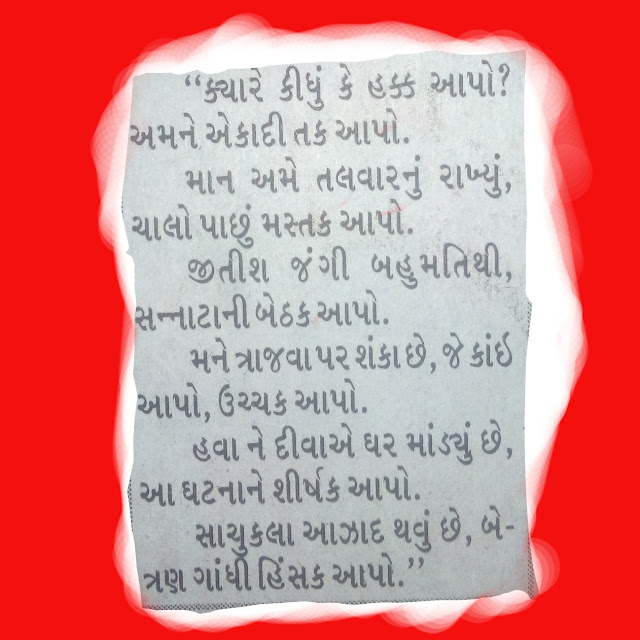 “ક્યારે કીધું કે હક્ક આપો?
અમને એકાદી તક આપો.
માન અમે તલવારનું રાખ્યું,
ચાલો પાછું મસ્તક આપો.
જીતીશ જંગી બહુમતિથી,
સન્નાટાની બેઠક આપો.
મને ત્રાજવા પર શંકા છે, જે કાંઇ
આપો, ઉચ્ચક આપો.
હવા ને દીવાએ ઘર માંડ્યું છે,
આ ઘટનાને શીર્ષક આપો.
સાચુકલા આઝાદ થવું છે, બે-
ત્રણ ગાંધી હિંસક આપો.”